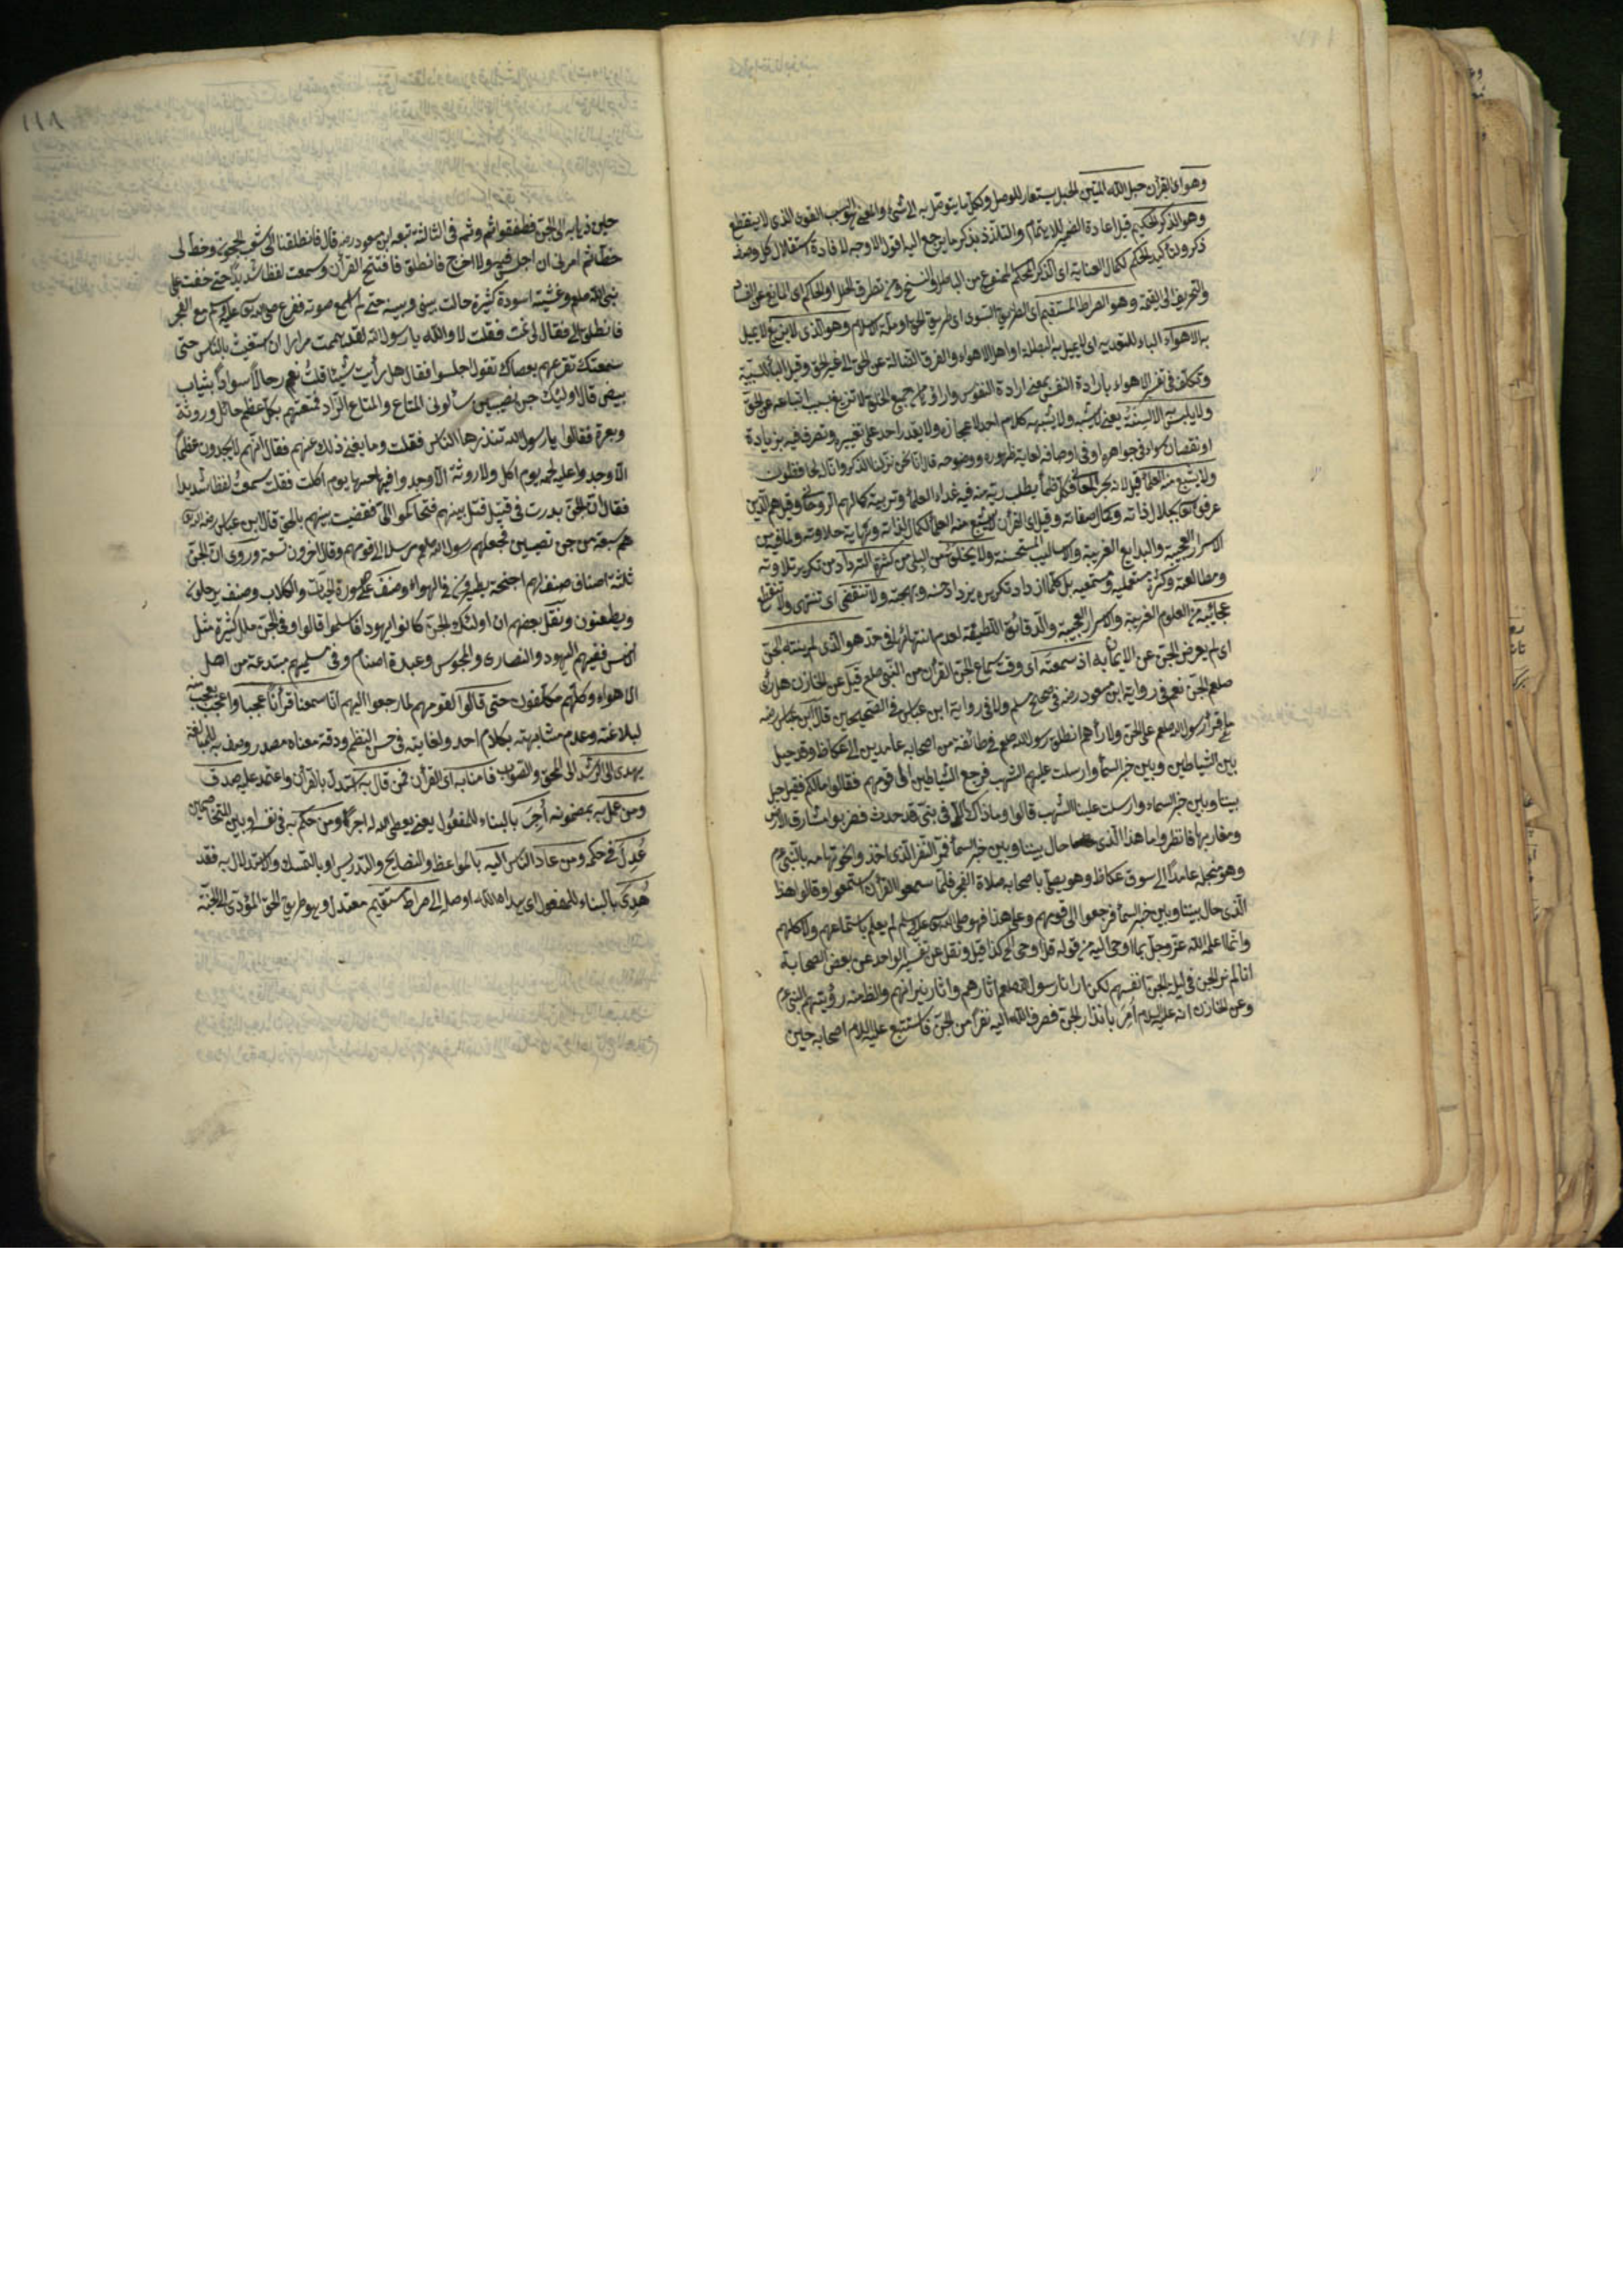 وهو اى القرأن حبل الله المتين الحبل يستعار للوصل وكل ما يتوصل به الى شئ والمعنى السبب القوى الذى لا ينقطع
وهو الذكر الحكيم قيل اعادة الضمير للاهتمام والتلذذ بذكر ما يرجع اليه اقول الاوجه لافادة استقلال كل وصف
ذكر ولتأكيد الحكم لكمال العناية اى الذكر المحكم الممنوع من الباطل والنسخ ومن تطرق الخلل او الحاكم اى المانع عن الفساد
والتحريف الى القيمة وهو الصراط المستقيم اى الطريق السوى اى طريق الحق او ملة الاسلام وهو الذى لا يزيغ لا يميل
به الاهواء الباء للتعدية اى لا يميل به المبطلة او اهل الاهواء والفرق الضالة عن الحق الى غير الحق وقيل الباء للسببية
وتكلف فى تفسير الاهواء بارادة النفس بمعنى ارادة النفوس وارائهم جميع الخلق لا تزيغ بسبب اتباعه عن الحق
ولا يلبس به الالسنة يعنى لا يشبه ولا يشبهه كلام احد لاعجازه ولا يقدر احد على تغييره وتصرف فيه بزيادة
او نقصان سواء فى جواهره او فى اوصافه لغاية ظهوره ووضوحه قال انا نحن نزلنا الذكر وانا له لحافظون
ولا يشبع منه العلماء قيل لانه بحر المعانى فكل ظمأ يطلب ريه منه فيه غذاء العلماء وتربية كمالهم الروحانى وقيل هم الذين
عرفوا تعالى بجلال ذاته وكمال صفاته وقيل اى القرأن لا يشبع منه العلماء لكمال لذاته ونهاية حلاوته ولما فيه من
الاسرار العجيبة والبدايع الغريبة والاساليب المستحسنة ولا يخلق من البلى من كثرة الترداد من تكرير تلاوته
ومطالعته وكثرة مستعمليه ومستمعيه بل كلما ازداد تكريره يزداد حسنه وبهجته ولا تنقضى اى تنتهى ولا تنقطع
عجائبه من العلوم الغريبة والاسرار العجيبة والدقائق اللطيفة لعدم انتهائها فى حد هو الذى لم ينته الجن
اى لم يعرض الجن عن الايمان به اذ سمعته اى وقت سماع الجن القرأن من النبى صلعم قيل عن الخازن هل رأى
صلعم الجن نعم فى رواية ابن مسعود رضه فى صحيح مسلم ولا فى رواية ابن عباس فى الصحيحين قال ابن عباس رضه
ما قرأ رسول الله صلعم على الجن ولا رأهم انطلق رسول الله صلعم فى طائفة من اصحابه عامدين الى عكاظ وقد حيل
بين الشياطين وبين خبر السماء وارسلت عليهم الشهب فرجع الشياطين الى قومهم فقالوا مالكم فقيل حيل
بيننا وبين خبر السماء وارسلت علينا الشهب قالوا وما ذاك الا فى شئ قد حدث فضربوا مشارق الارض
ومغاربها فانظروا ما هذا الذى حال بيننا وبين خبر السماء فمر النفر الذى اخذوا نحو تهامه بالنبى عم
وهو بنخلة عامدا الى سوق عكاظ وهو يصلى باصحابه صلاة الفجر فلما سمعوا القرأن استمعوا وقالوا هذا
الذى حال بيننا وبين خبر السماء فرجعوا الى قومهم وعلى هذا فهو صلى الله عليه وسلم لم يعلم باستماعهم ولا كلمهم
وانما اعلمه الله عز وجل بما اوحى اليه من قوله قل اوحى الى كذا قيل ونقل عن تفسير الواحد عن بعض الصحابة
انا لم نر الجن فى ليلة الجن انفسهم لكن ارانا رسول الله صلعم اثارهم واثار نيرانهم والظاهر رؤيتهم النبى عم
وعن الخازن انه عليه السلام امر بانذار الجن فصرف الله اليه نفرا من الجن فاستتبع عليه السلام اصحابه حين
حلين ذهابه الى الجن فطفقوا ثم وثم فى الثالثة تبعه ابن مسعود رضه قال فانطلقنا الى شعب الحجون وخط لى
خطا ثم امرنى ان اجلس فيه ولا اخرج فانطلق فافتتح القرأن وسمعت لفظا شديدا حتى خفت على
نبى الله صلعم وغشيته اسودة كثيرة حالت بينى وبينه حتى لم اسمع صوته ففرغ صلى الله تعالى عليه وسلم مع الفجر
فانطلق الى فقال لى نمت فقلت لا والله يا رسول الله لقد هممت مرارا ان استغيث بالناس حتى
سمعتك تقرعهم بعصاك تقول اجلسوا فقال هل رأيت شيئا قلت نعم رجالا اسوادا بثياب
بيض قال اولئك جن نصيبين سألونى المتاع والمتاع الزاد فمتعتهم بكل عظم حائل وروثة
وبعرة فقالوا يا رسول الله تنذرها الناس فقلت وما يغنى ذلك عنهم فقال انهم لا يجدون عظما
الا وجدوا عليه لحمه يوم اكل ولا روثة الا وجدوا فيها حبها يوم اكلت فقلت سمعت لفظا شديدا
فقال ان الجن بدرت فى قتيل قتل بينهم فتحاكموا الى فقضيت بينهم بالحق قال ابن عباس رضه
هم سبعة من جن نصيبين فجعلهم رسول الله صلعم رسلا الى قومهم وقال اخرون تسعة وروى ان الجن
ثلثة اصناف صنف لهم اجنحة يطيرون فى الهواء وصنف على صورة الحيات والكلاب وصنف يرحلون
ويظعنون ونقل بعضهم ان اولئك الجن كانوا يهودا فاسلموا قالوا وفى الجن ملل كثيرة مثل
الانس ففيهم اليهود والنصارى والمجوس وعبدة اصنام وفى مسلميهم مبتدعة من اهل
الاهواء وكلهم مكلفون حتى قالوا لقومهم لما رجعوا اليهم انا سمعنا قرأنا عجبا واعجب
لبلاغته وعدم مشابهته بكلام احد ولغايته فى حسن النظم ودقة معناه مصدر وصف به للمبالغة
يهدى الى الرشد الى الحق والصواب فامنا به اى القرأن فمن قال به استدل بالقرأن واعتمد عليه صدق
ومن عمل به بمضمونه اجر بالبناء للمفعول يعنى يعطى الله له اجرا ومن حكم به فى نفسه او بين المتخاصمين
عدل فى حكمه ومن عاد الناس اليه بالمواعظ والنصايح والتدريس او بالتمسك والاستدلال به فقد
هدى بالبناء للمفعول اى هداه الله اوصل الى صراط مستقيم معتدل وهو طريق الحق المؤدى الى الجنة